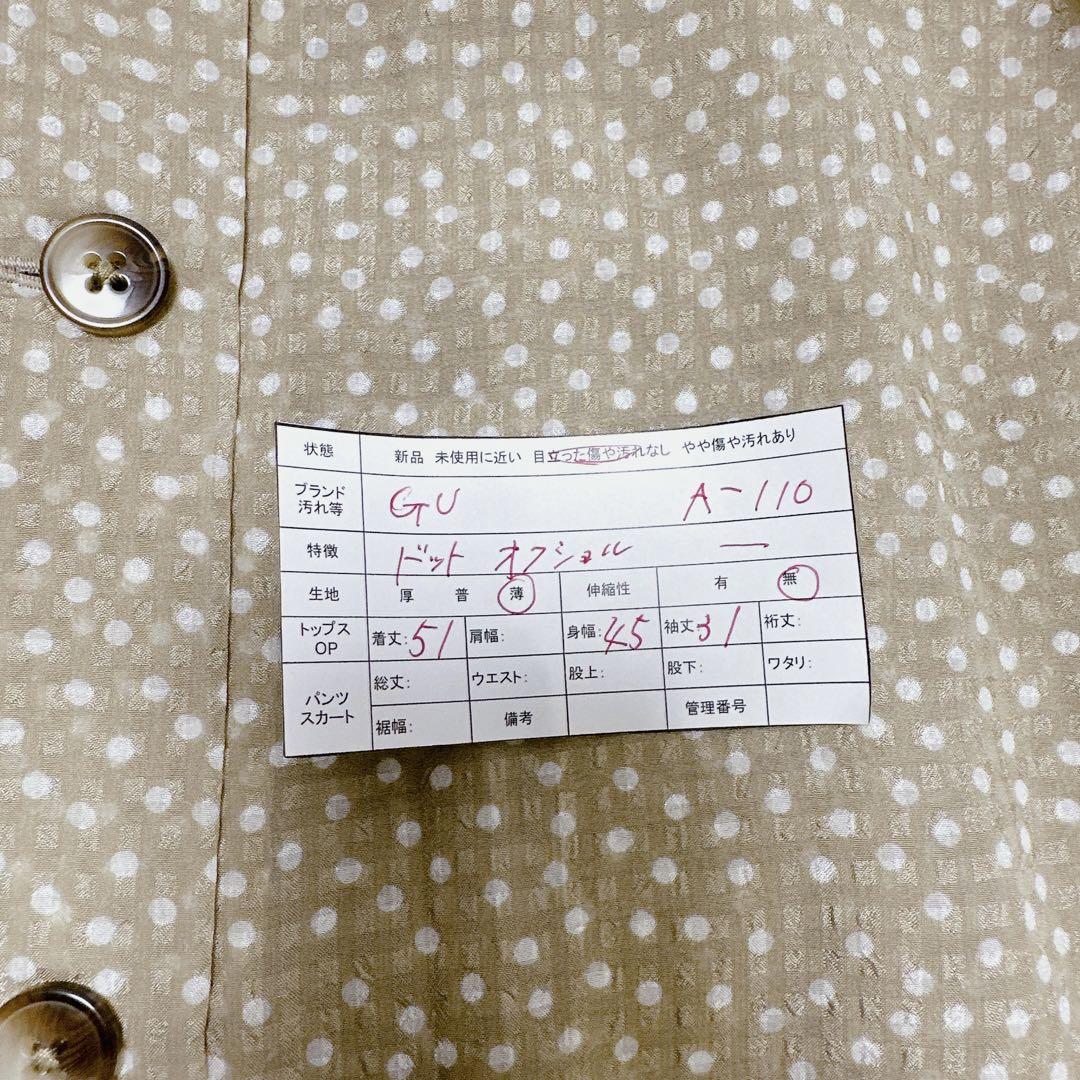 状態 新品 未使用に近い 目立った傷や汚れなし やや傷や汚れあり
ブランド
汚れ等 GU A-110
特徴 ドット オフショル ー
生地 厚 普 薄 伸縮性 有 無
トップス
OP 着丈:51 肩幅: 身幅:45 袖丈31 裄丈:
パンツ
スカート 総丈: ウエスト: 股上: 股下: ワタリ:
裾幅: 備考 管理番号